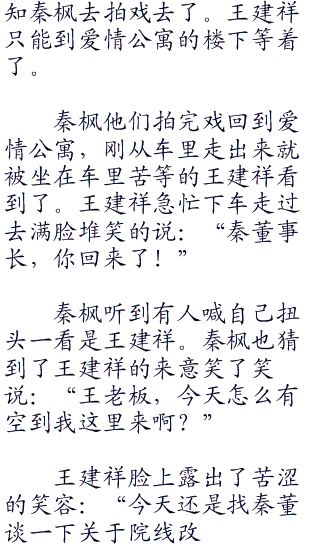 知秦枫去拍戏去了。王建祥
只能到爱情公寓的楼下等着
了。
秦枫他们拍完戏回到爱
情公寓，刚从车里走出来就
被坐在车里苦等的王建祥看
到了。王建祥急忙下车走过
去满脸堆笑的说：“秦董事
长，你回来了！”
秦枫听到有人喊自己扭
头一看是王建祥。秦枫也猜
到了王建祥的来意笑了笑
说：“王老板，今天怎么有
空到我这里来啊？”
王建祥脸上露出了苦涩
的笑容：“今天还是找秦董
谈一下关于院线改